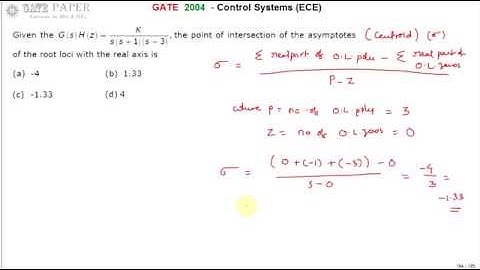 GATE PAPER
GATE 2004 - Control Systems (ECE)
Given the G(s)H(z) - K / s(s + 1)(s - 3), the point of intersection of the asymptotes (Centroid) (σ)
of the root loci with the real axis is
(a) -4 (b) 1.33
(c) -1.33 (d) 4
σ = Σ real part of O.L poles - Σ real part of O.L zeros / P - Z
where P = no. of O.L poles = 3
Z = no of O.L zeros = 0
σ = (0 + (-1) + (-3)) - 0 / 3 - 0 = -4 / 3 =
-1.33